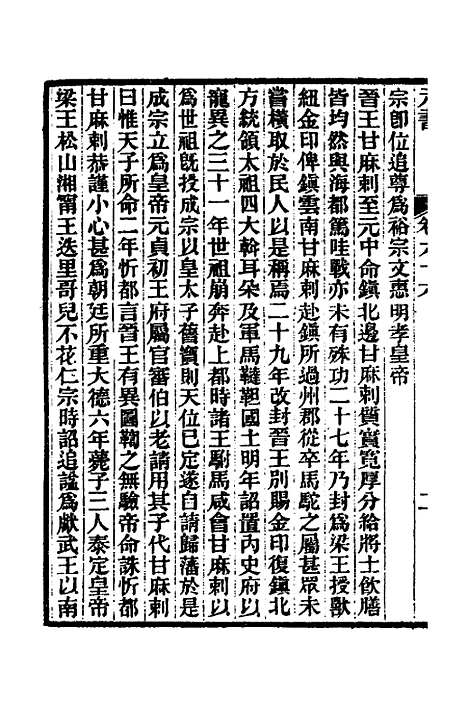 宗卽位追尊爲裕宗文惠明孝皇帝
晉王甘麻剌至元中命鎭北邊甘麻剌質實寬厚分給將士飮膳
皆均然與海都篤哇戰亦未有殊功二十七年乃封爲梁王授獸
紐金印俾鎭雲南甘麻剌赴鎭所過州郡從卒馬駝之屬甚眾未
嘗橫取於民人以是稱焉二十九年改封晉王別賜金印復鎭北
方統領太祖四大斡耳朵及軍馬韃靼國土明年詔置內史府以
寵異之三十一年世祖崩奔赴上都時諸王駙馬咸會甘麻剌以
爲世祖旣授成宗以皇太子舊寶則天位已定遂自請歸藩於是
成宗立爲皇帝元貞初王府屬官審伯以老請用其子代甘麻剌
曰惟天子所命二年忻都言晉王有異圖鞫之無驗帝命誅忻都
甘麻剌恭謹小心甚爲朝廷所重大德六年薨子三人泰定皇帝
梁王松山湘甯王迭里哥兒不花仁宗時詔追諡爲獻武王以南